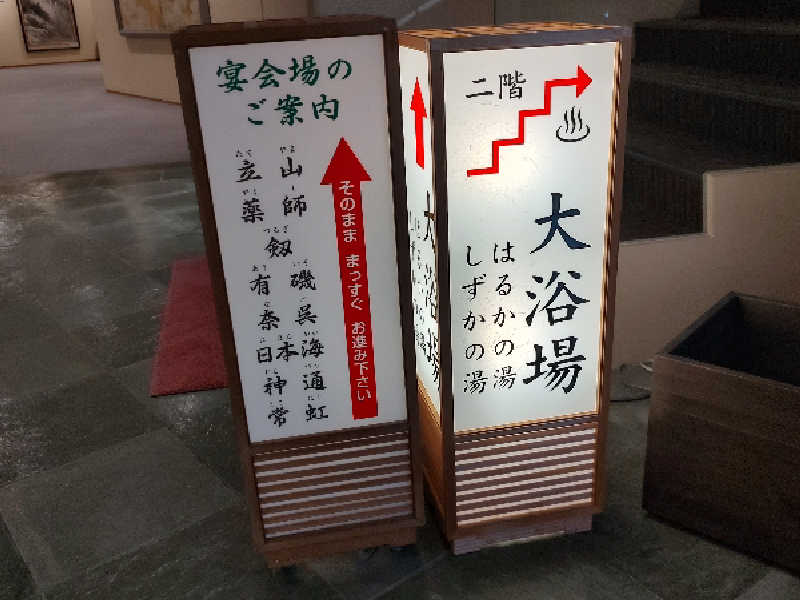 宴会場の
ご案内
立山
薬師
釼
有磯
奈呉
日本海
神通
常虹
そのまま まっすぐ お進み下さい
大浴場
二階
大浴場
はるかの湯
しずかの湯